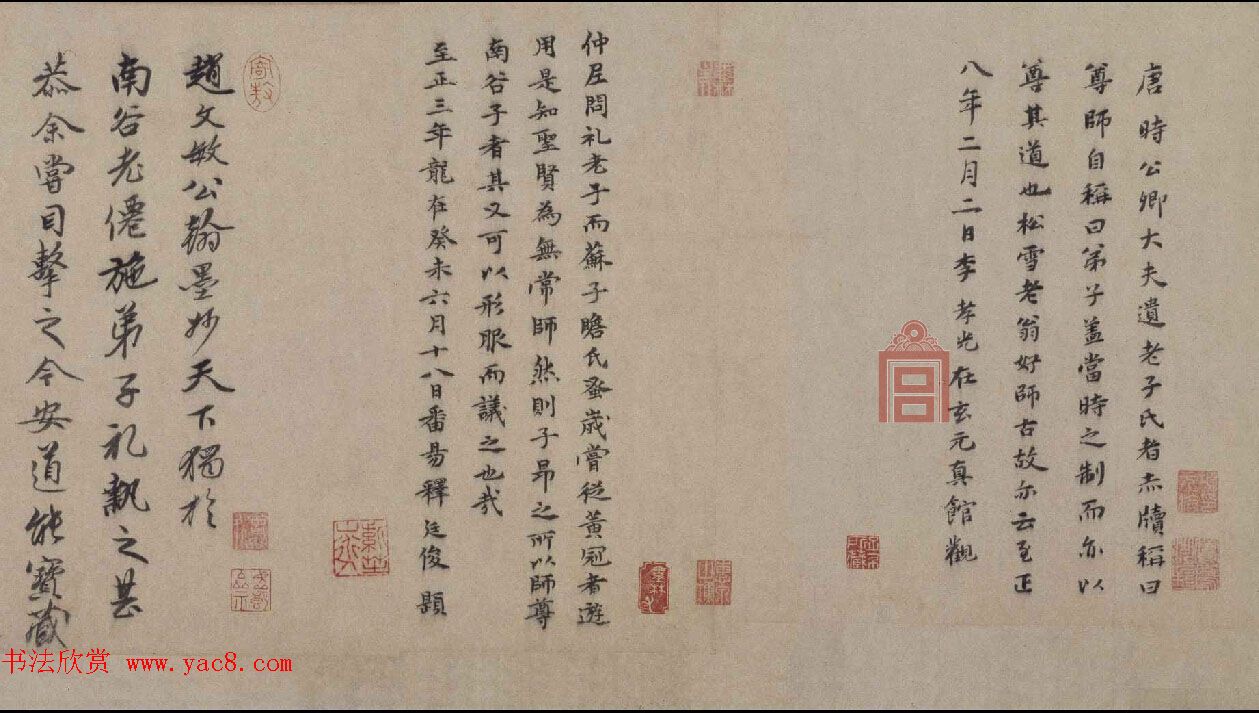 唐時公卿大夫遺老子氏者赤牘稱曰
尊師自稱曰弟子盖當時之制而亦以
尊其道也松雪老翁好師古故亦云至正
八年二月二日李孝光在玄元真館觀
仲尼問礼老子而蘇子瞻氏蚤歲嘗從黄冠者遊
用是知聖賢為無常師然則子昂之所以師尊
南谷子者其又可以形服而議之也哉
至正三年龍在癸未六月十八日番昜釋廷俊題
趙文敏公翰墨妙天下獨於
南谷老僊施弟子礼執之甚
恭余嘗目擊之今安道能寶藏
书法欣赏 www.yac8.com